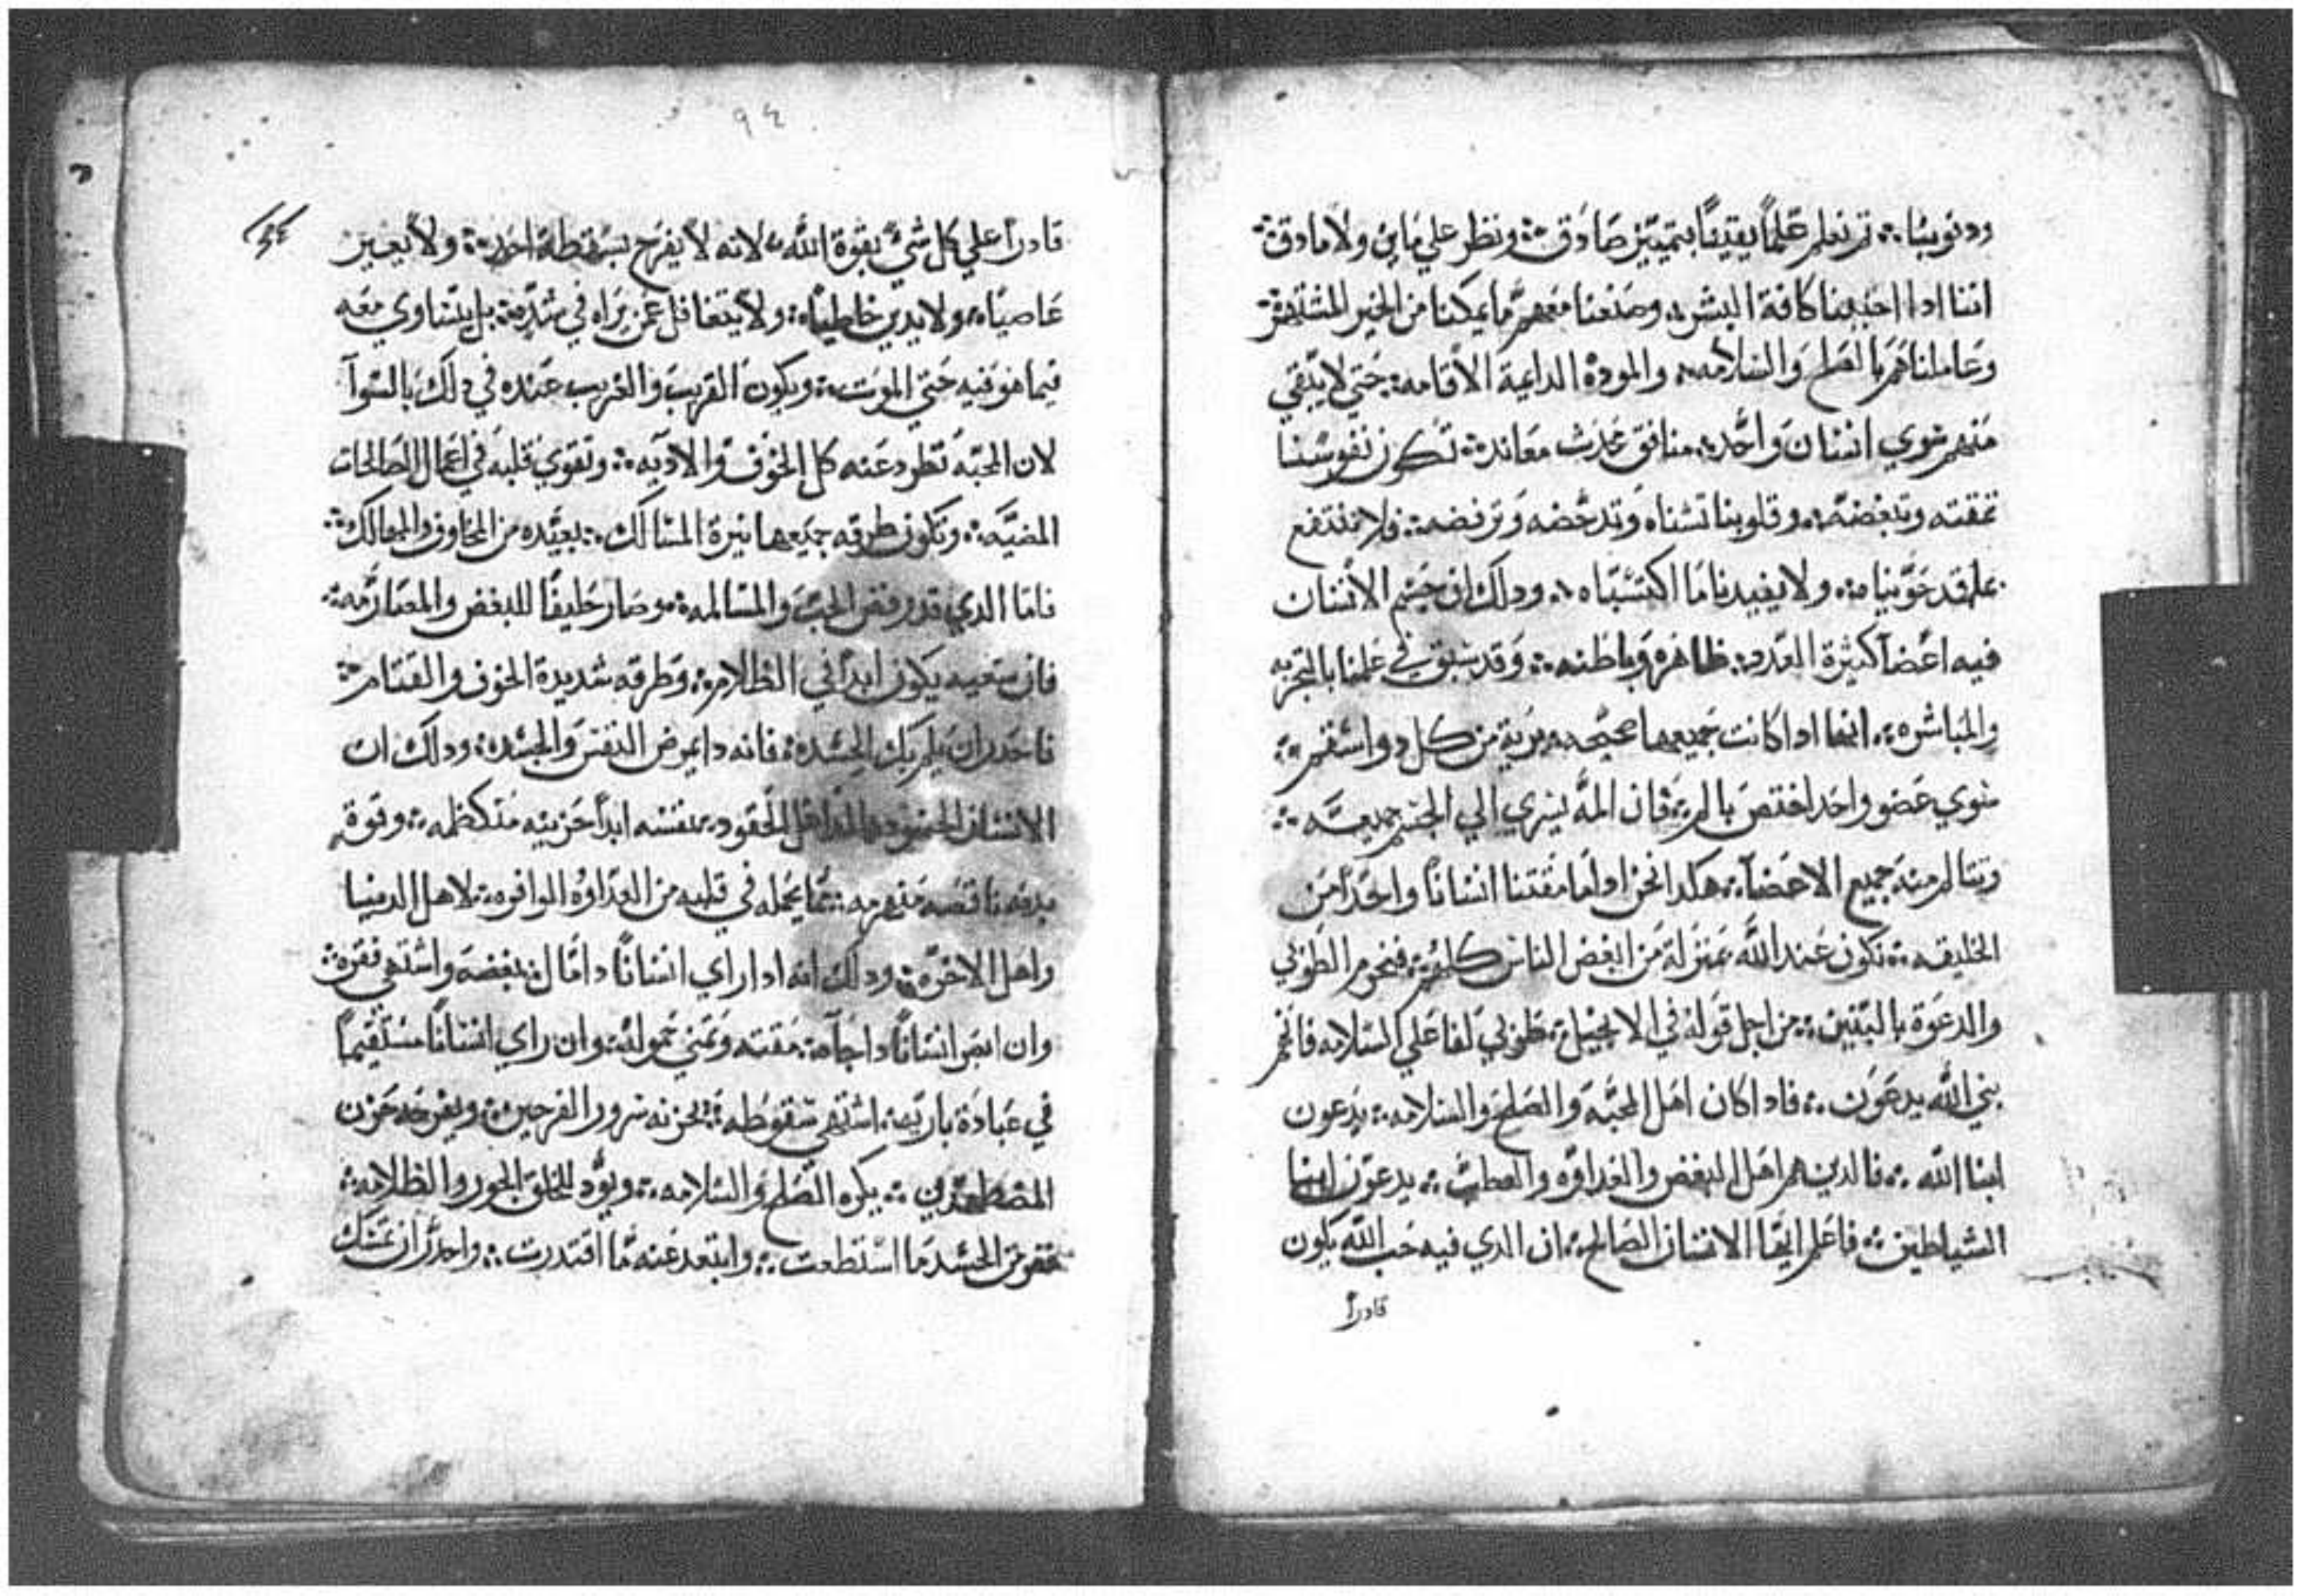 ودنوبنا ܀ ثم نعلم علماً يقيناً بتمييز صادق ܀ وننظر علي ما بين ولاما دق ܀
اننا ادا احببنا كافة البشر ܀ وصنعنا معهم ما يمكنا من الخير المشتهر ܀
وعاملناهم بالصلح والسلامه ܀ والمودة الدايمة الاقامه ܀ حتي لا يبقي
منهم سوي انسان واحد ܀ منافق معاند ܀ تكون نفوسنا
تمقته وتبغضه ܀ وقلوبنا تشناه وتدحضه وترفضه ܀ فلا ننتفع
بما قد حويناه ܀ ولا يفيدنا ما اكتسبناه ܀ ودلك ان جسم الانسان
فيه اعضآ كثيرة العدد ܀ ظاهره وباطنه ܀ وقد سبق في علمنا بالتجربه
والمباشره ܀ انها ادا كانت جميعها صحيحه بريه من كل دو اسقم ܀
سوي عضو واحد اختص بالم ܀ فان المه يسري الي الجسم جميعه ܀
وتتالم منه جميع الاعضآ ܀ هكدا نحن اولما مقتنا انساناً واحداً من
الخليقه ܀ نكون عند الله بمنزلة من ابغض الناس كلهم ܀ فنحرم الطوبي
والدعوة بالبنين ܀ من اجل قوله في الانجيل ܀ طوبي لفاعلي السلامه فانهم
بني الله يدعون ܀ فادا كان اهل المحبه والصلح والسلامه ܀ يدعون
ابنا الله ܀ فالدين هم اهل البغض والعداوه والعطب ܀ يدعون ابنا
الشياطين ܀ فاعلم ايها الانسان الصالح ܀ ان الدي فيه حب الله يكون
قادراً
٩٤
قادراً علي كل شيء بقوة الله ܀ لانه لا يفرح بسقطة احد ܀ ولا يعين
عاصياً ܀ ولا يدين خاطياً ܀ ولا يتغافل عن يراه في شده ܀ بل يتساوي معه
فيما هو فيه حتي الموت ܀ ويكون القريب والغريب عنده في دلك بالسوآ
لان المحبه تطرد عنه كل الخوف والاديه ܀ وتقوي قلبه في اعمال الصالحات
المضيه ܀ وتكون طرقه جميعها نيرة المسالك ܀ بعيده من المخاوف والمهالك ܀
فاما الدي قد رفض الحب والمسالمه ܀ وصار حليفاً للبغض والمصارمه ܀
فان سعيه يكون ابداً في الظلام ܀ وطرقه شديدة الخوف والقتام ܀
فاحدر ان يلم بك الحسد ܀ فانه دا يمرض النفس والجسد ܀ ودلك ان
الانسان الحسود الحقود ܀ نفسه ابداً حزينه متكظمه ܀ وقوة
بدنه ناقصه منهزمه ܀ مما يجمله في قلبه من العداوه الوافره ܀ لاهل الدنيا
واهل الاخره ܀ ودلك انه ادا راي انساناً دا مال ܀ بغضه واشتهي فقره ܀
وان ابصر انساناً دا جاه ܀ مقته وتمني خموله ܀ وان راي انساناً مستقيماً
في عبادة باريه ܀ اشتهي سقوطه ܀ يحزنه سرور الفرحين ܀ ويفرحه حزن
المضطهدين ܀ يكره الصلح والسلامه ܀ ويود للخلق الجور والظلامه ܀
من الحسد ما استطعت ܀ وابتعد عنه ما اقتدرت ܀ واحدر ان تمسك